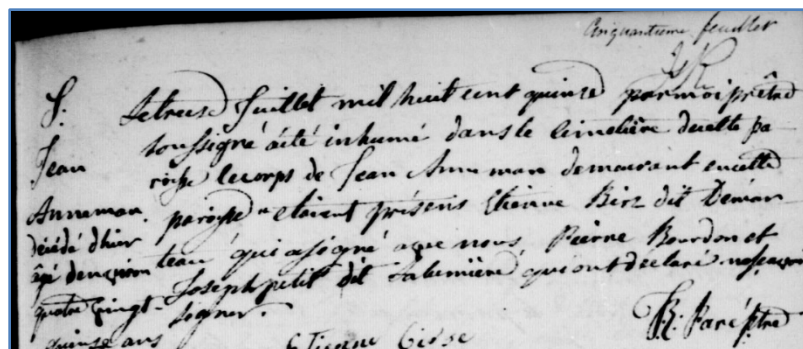 Cinquantieme feuillet
S.
Jean
Anneman.
décédé d'hier
âgé d'environ
quatre vingt-
quinze ans
Le treize Juillet mil huit cent quinze par moi prêtre
soussigné a été inhumé dans le cimetière de cette pa
roisse le corps de Jean Anneman demeurant en cette
paroisse etaient présens Etienne Birz dit Demar
teau qui a signé avec nous, Pierre Bourdon et
Joseph petit dit Lalumière qui ont déclaré ne savoir
signer.
Etienne
Paré ptre